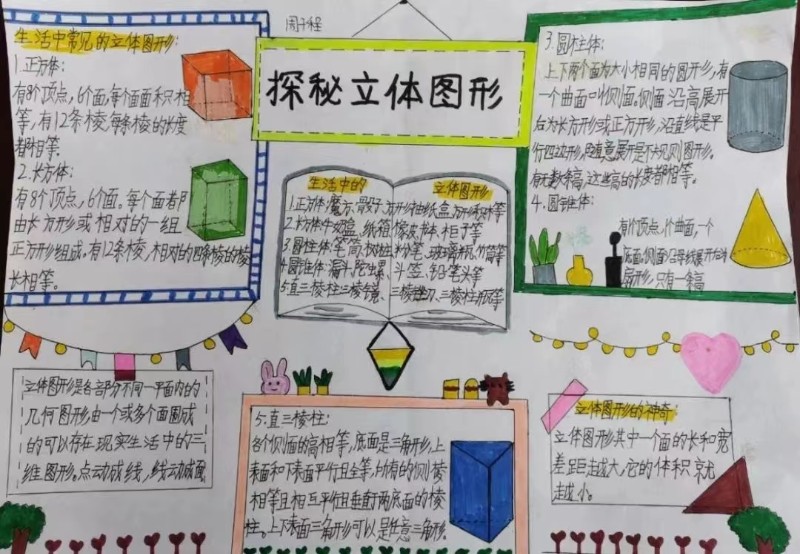 周子程
探秘立体图形
生活中常见的立体图形:
1.正方体:
有8个顶点,6个面,每个面面积相
等,有12条棱,每条棱的长度
都相等.
2.长方体:
有8个顶点,6个面。每个面都
由长方形或相对的一组
正方形组成。有12条棱,相对的四条棱的棱
长相等。
生活中的 立体图形
1.正方体:魔方、骰子、方形抽纸盒、方形
2.长方体:牛奶盒、纸箱、橡皮、书本、柜子等
3.圆柱体:笔筒、树桩、粉笔、玻璃杯、竹筒等
4.圆锥体:漏斗、陀螺、斗笠、铅笔头等
5.直三棱柱:三棱镜、三棱
3.圆柱体:
上下两个面为大小相同的圆形,有
一个曲面叫侧面。侧面沿高展开
后为长方形或正方形,沿直线是平
行四边形,随意展开是不规则图形。
有无数条高,这些高的长度都相等。
4.圆锥体:
有1个顶点,1个曲面,一个
底面,侧面沿母线展开后为
扇形,只有一条高
立体图形是各部分不同一平面内的
几何图形,由一个或多个面围成
的可以存在现实生活中的三
维图形。点动成线,线动成面
5.直三棱柱:
各个侧面的高相等,底面是三角形,上
表面和下表面平行且全等,所有的侧棱
相等且相互平行且垂直于两底面的棱
柱。上下表面三角形可以是任意三角形.
立体图形的神奇:
立体图形其中一个面的长和宽
差距越大,它的体积就
越小。